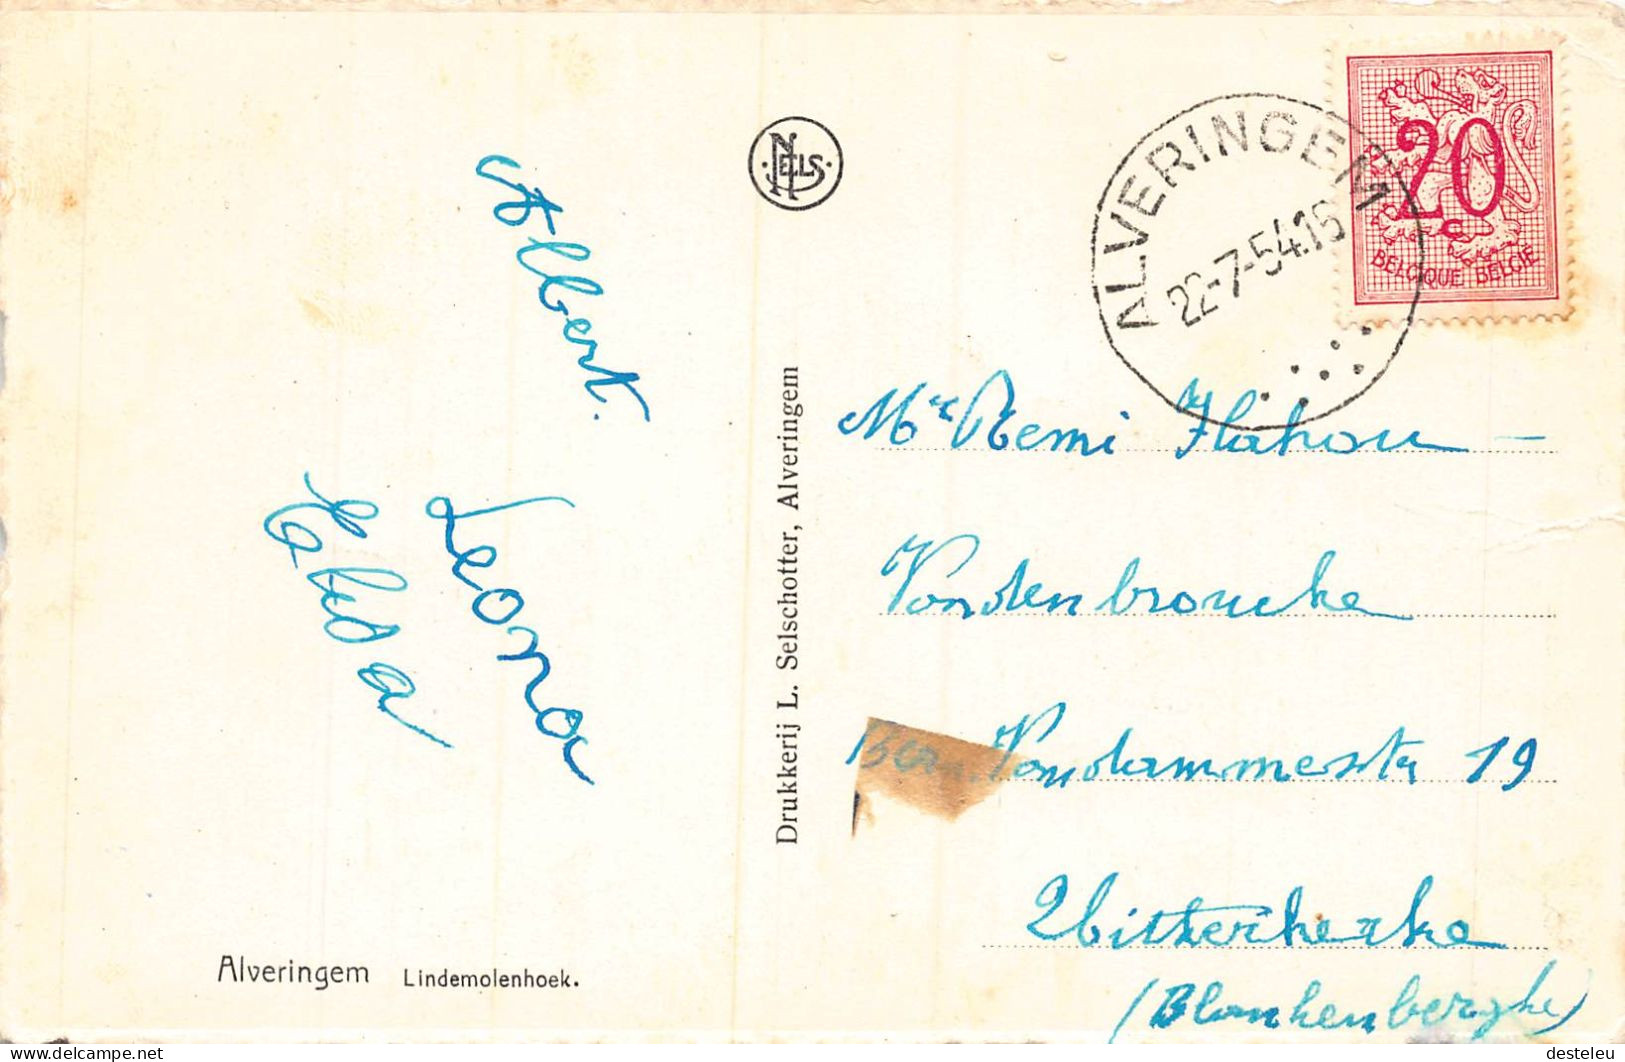 Albert.
Leona
Elida
Alveringem Lindemolenhoek.
NELS
Drukkerij L. Selschotter, Alveringem
ALVERINGEM
22-7-54.15
20
C
BELGIQUE BELGIË
Mr Remi Flahou -
Vandenbroucke
Vandammestr 19
Uitkerkerke
(Blankenberghe)
www.delcampe.net
desteleu